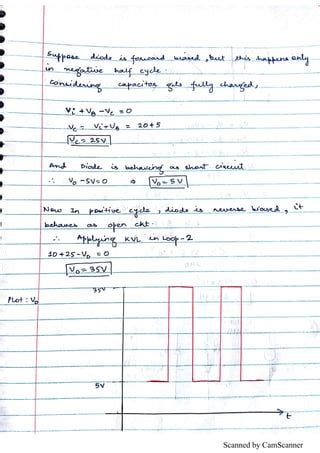 Suppose diode is forward biased, but this happens only
in negative half cycle.
Considering capacitor gets fully charged,
Vi + VB - Vc = 0
Vc = Vi + VB = 20+5
Vc = 25V
And Diode is behaving as short circuit
∴ Vo - 5V = 0 ⇒ Vo = 5V
Now In positive cycle, diode is reverse biased, it
behaves as open ckt.
∴ Applying KVL in Loop-2
10 + 25 - Vo = 0
Vo = 35V
Plot : Vo
35V
5V
t
Scanned by CamScanner